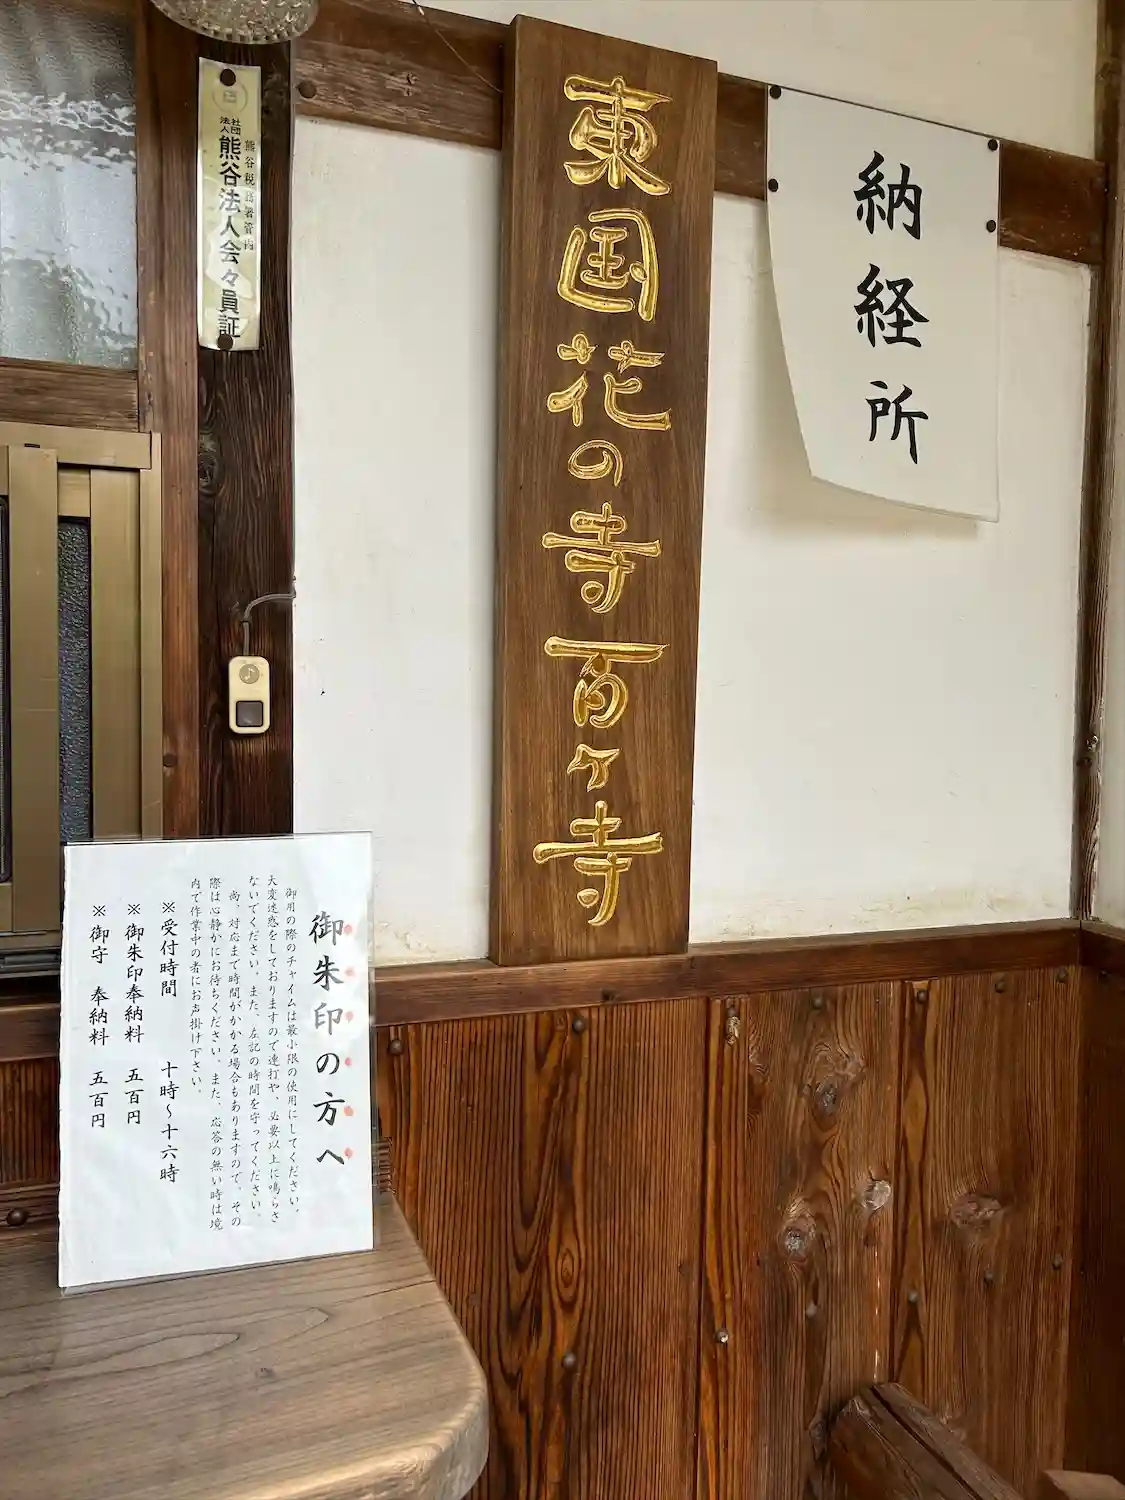 納経所
東国花の寺百ヶ寺
社団
法人
熊谷税務署管内
熊谷法人会々員証
御朱印の方へ
御用の際のチャイムは最小限の使用にしてください。
大変迷惑をしておりますので連打や、必要以上に鳴らさ
ないでください。また、左記の時間を守ってください。
尚、対応まで時間がかかる場合もありますので、その
際は心静かにお待ちください。また、応答の無い時は境
内で作業中の者にお声掛け下さい。
※受付時間 十時～十六時
※御朱印奉納料 五百円
※御守 奉納料 五百円